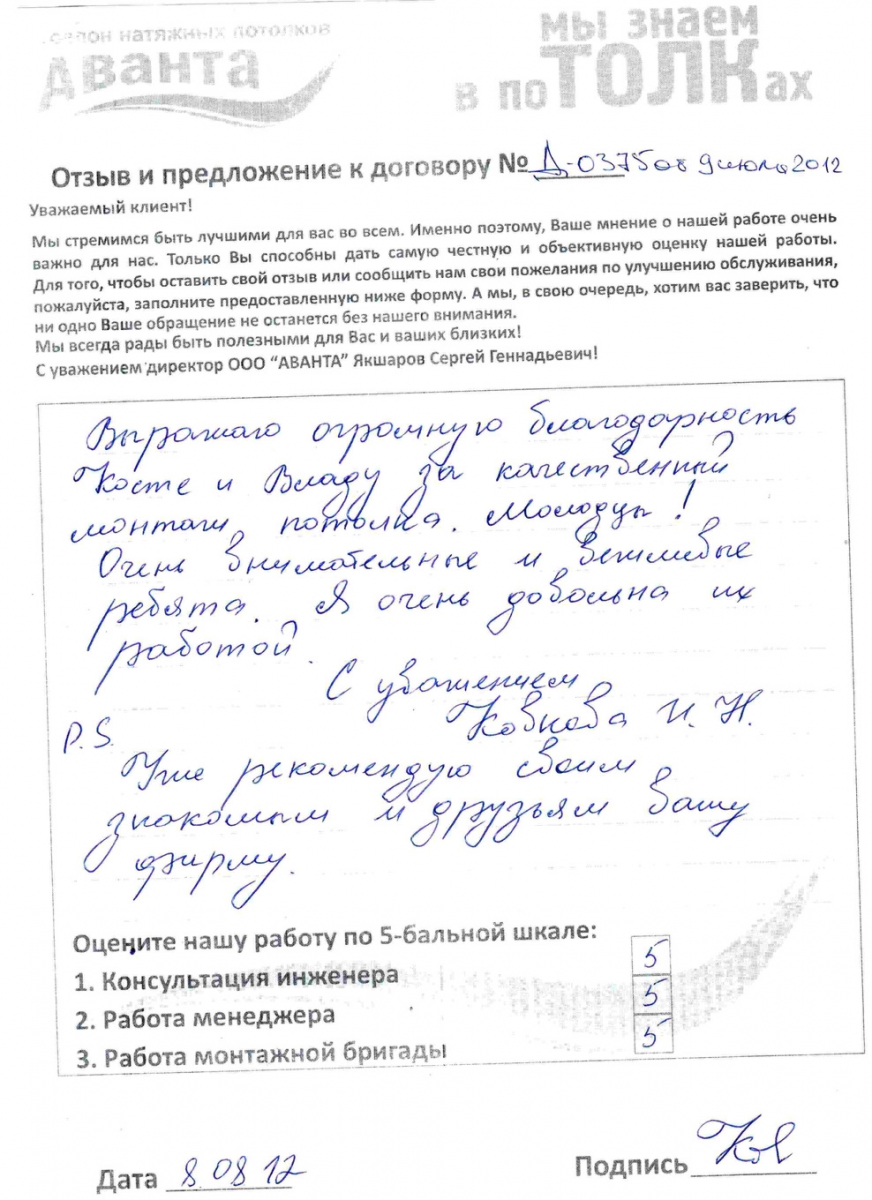 салон натяжных потолков
Аванта
мы знаем
в поТОЛКах
Отзыв и предложение к договору № Д-0375 от 9 июля 2012
Уважаемый клиент!
Мы стремимся быть лучшими для вас во всем. Именно поэтому, Ваше мнение о нашей работе очень
важно для нас. Только Вы способны дать самую честную и объективную оценку нашей работы.
Для того, чтобы оставить свой отзыв или сообщить нам свои пожелания по улучшению обслуживания,
пожалуйста, заполните предоставленную ниже форму. А мы, в свою очередь, хотим вас заверить, что
ни одно Ваше обращение не останется без нашего внимания.
Мы всегда рады быть полезными для Вас и ваших близких!
С уважением директор ООО “АВАНТА” Якшаров Сергей Геннадьевич!
Выражаю огромную благодарность
Косте и Владу за качественный
монтаж потолка. Молодцы!
Очень внимательные и вежливые
ребята. Я очень довольна их
работой.
С уважением
Ковкова И. Н.
P.S.
Уже рекомендую своим
знакомым и друзьям вашу
фирму.
Оцените нашу работу по 5-бальной шкале:
1. Консультация инженера 5
2. Работа менеджера 5
3. Работа монтажной бригады 5
Дата 8 08 12
Подпись Ков